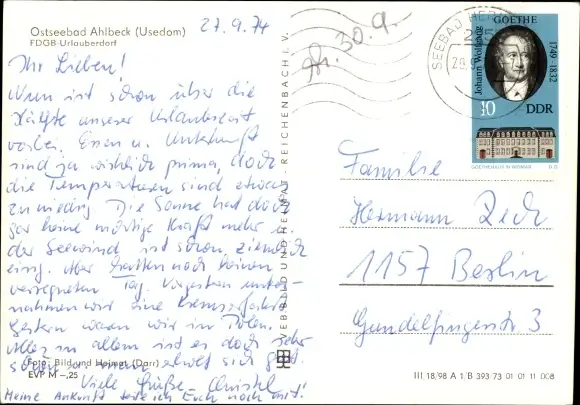 Ostseebad Ahlbeck (Usedom)
FDGB-Urlauberdorf
27.9.74
Ihr Lieben!
Nun ist schon über die
Hälfte unserer Urlaubszeit
vorbei. Essen u. Unterkunft
sind ja wirklich prima, doch
die Temperaturen sind etwas
zu niedrig. Die Sonne hat doch
gar keine richtige Kraft mehr u.
der Seewind ist schon ziemlich
eisig. Aber hatten noch keinen
verregneten Tag. Vorgestern unter-
nahmen wir eine Kremserfahrt
gestern waren wir in Polen.
Alles in allem ist es doch sehr
schön u. man erholt sich gut.
Viele Grüße
Meine Ankunft teile ich Euch noch mit!
Foto: Bild und Heimat (Darr)
EVP M –,25
BILD UND HEIMAT REICHENBACH I. V.
30.9.
SEEBAD
GOETHE
Johann Wolfgang
1749-1832
10 DDR
GOETHEHAUS IN WEIMAR
Familie
Hermann
1157 Berlin
3
III 18/98 A 1/B 393 73 01 01 11 008